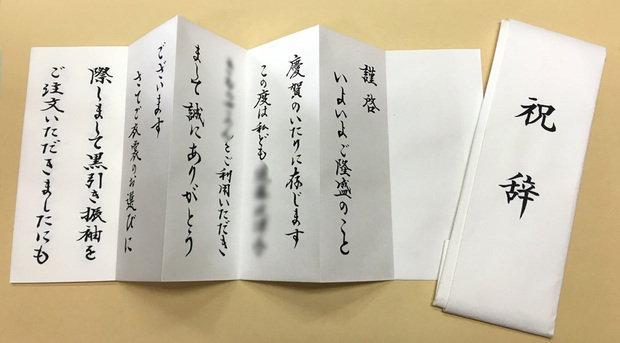 謹啓
いよいよご隆盛のこと
慶賀のいたりに存じます
この度は私ども
とご利用いただき
まして誠にありがとう
ございます
さてご衣裳のお選びに
際しまして黒引き振袖を
ご注文いただきましたにも
祝辞